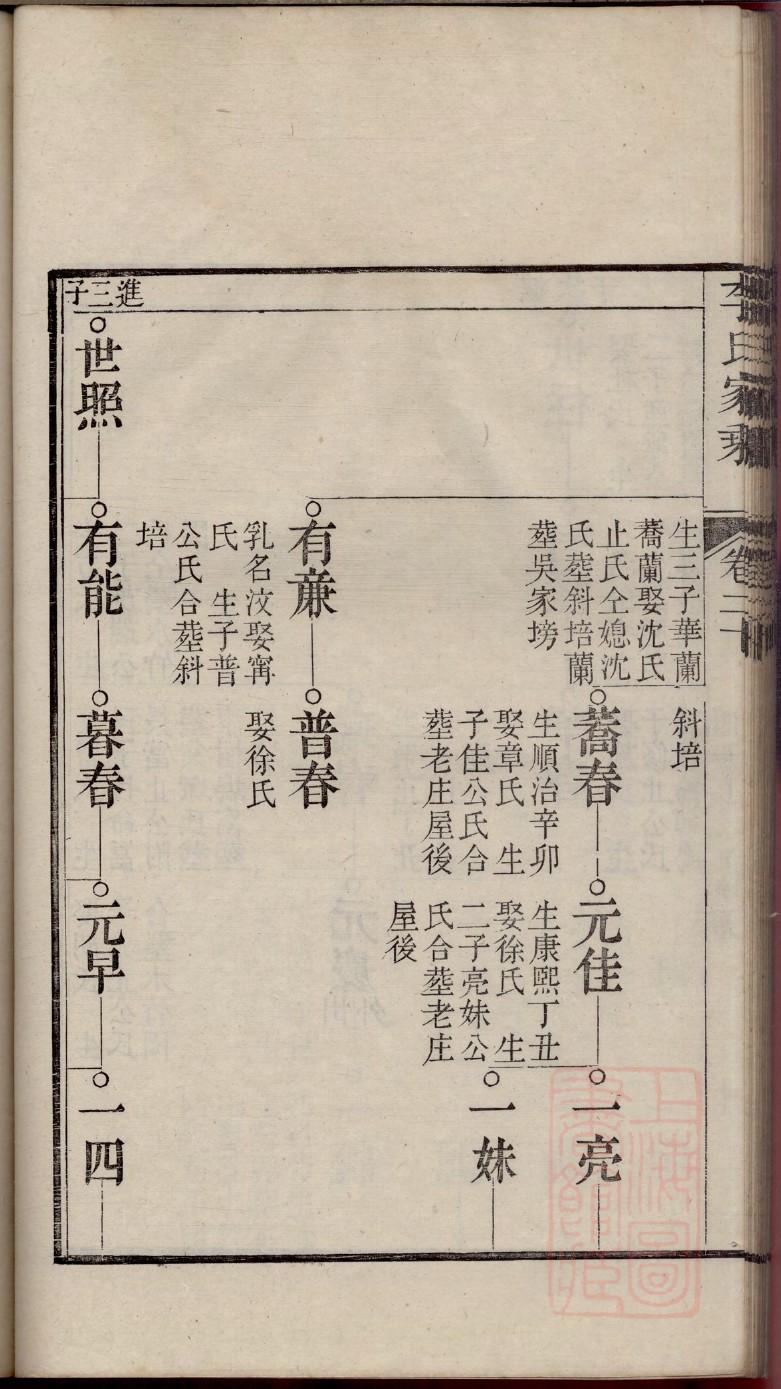 氏家乘
卷二十
生三子華蘭
蕎蘭娶沈氏
止氏仝媳沈
氏塟斜培蘭
塟吳家塝
斜培
蕎春
生順治辛卯
娶章氏　生
子佳公氏合
塟老庄屋後
元佳
生康熙丁丑
娶徐氏　生
二子亮妹公
氏合塟老庄
屋後
一亮
一妹
有亷
乳名汶娶甯
氏　生子普
公氏合塟斜
培
普春
娶徐氏
進三子
世照
有能
暮春
元早
一四
上海圖書館藏